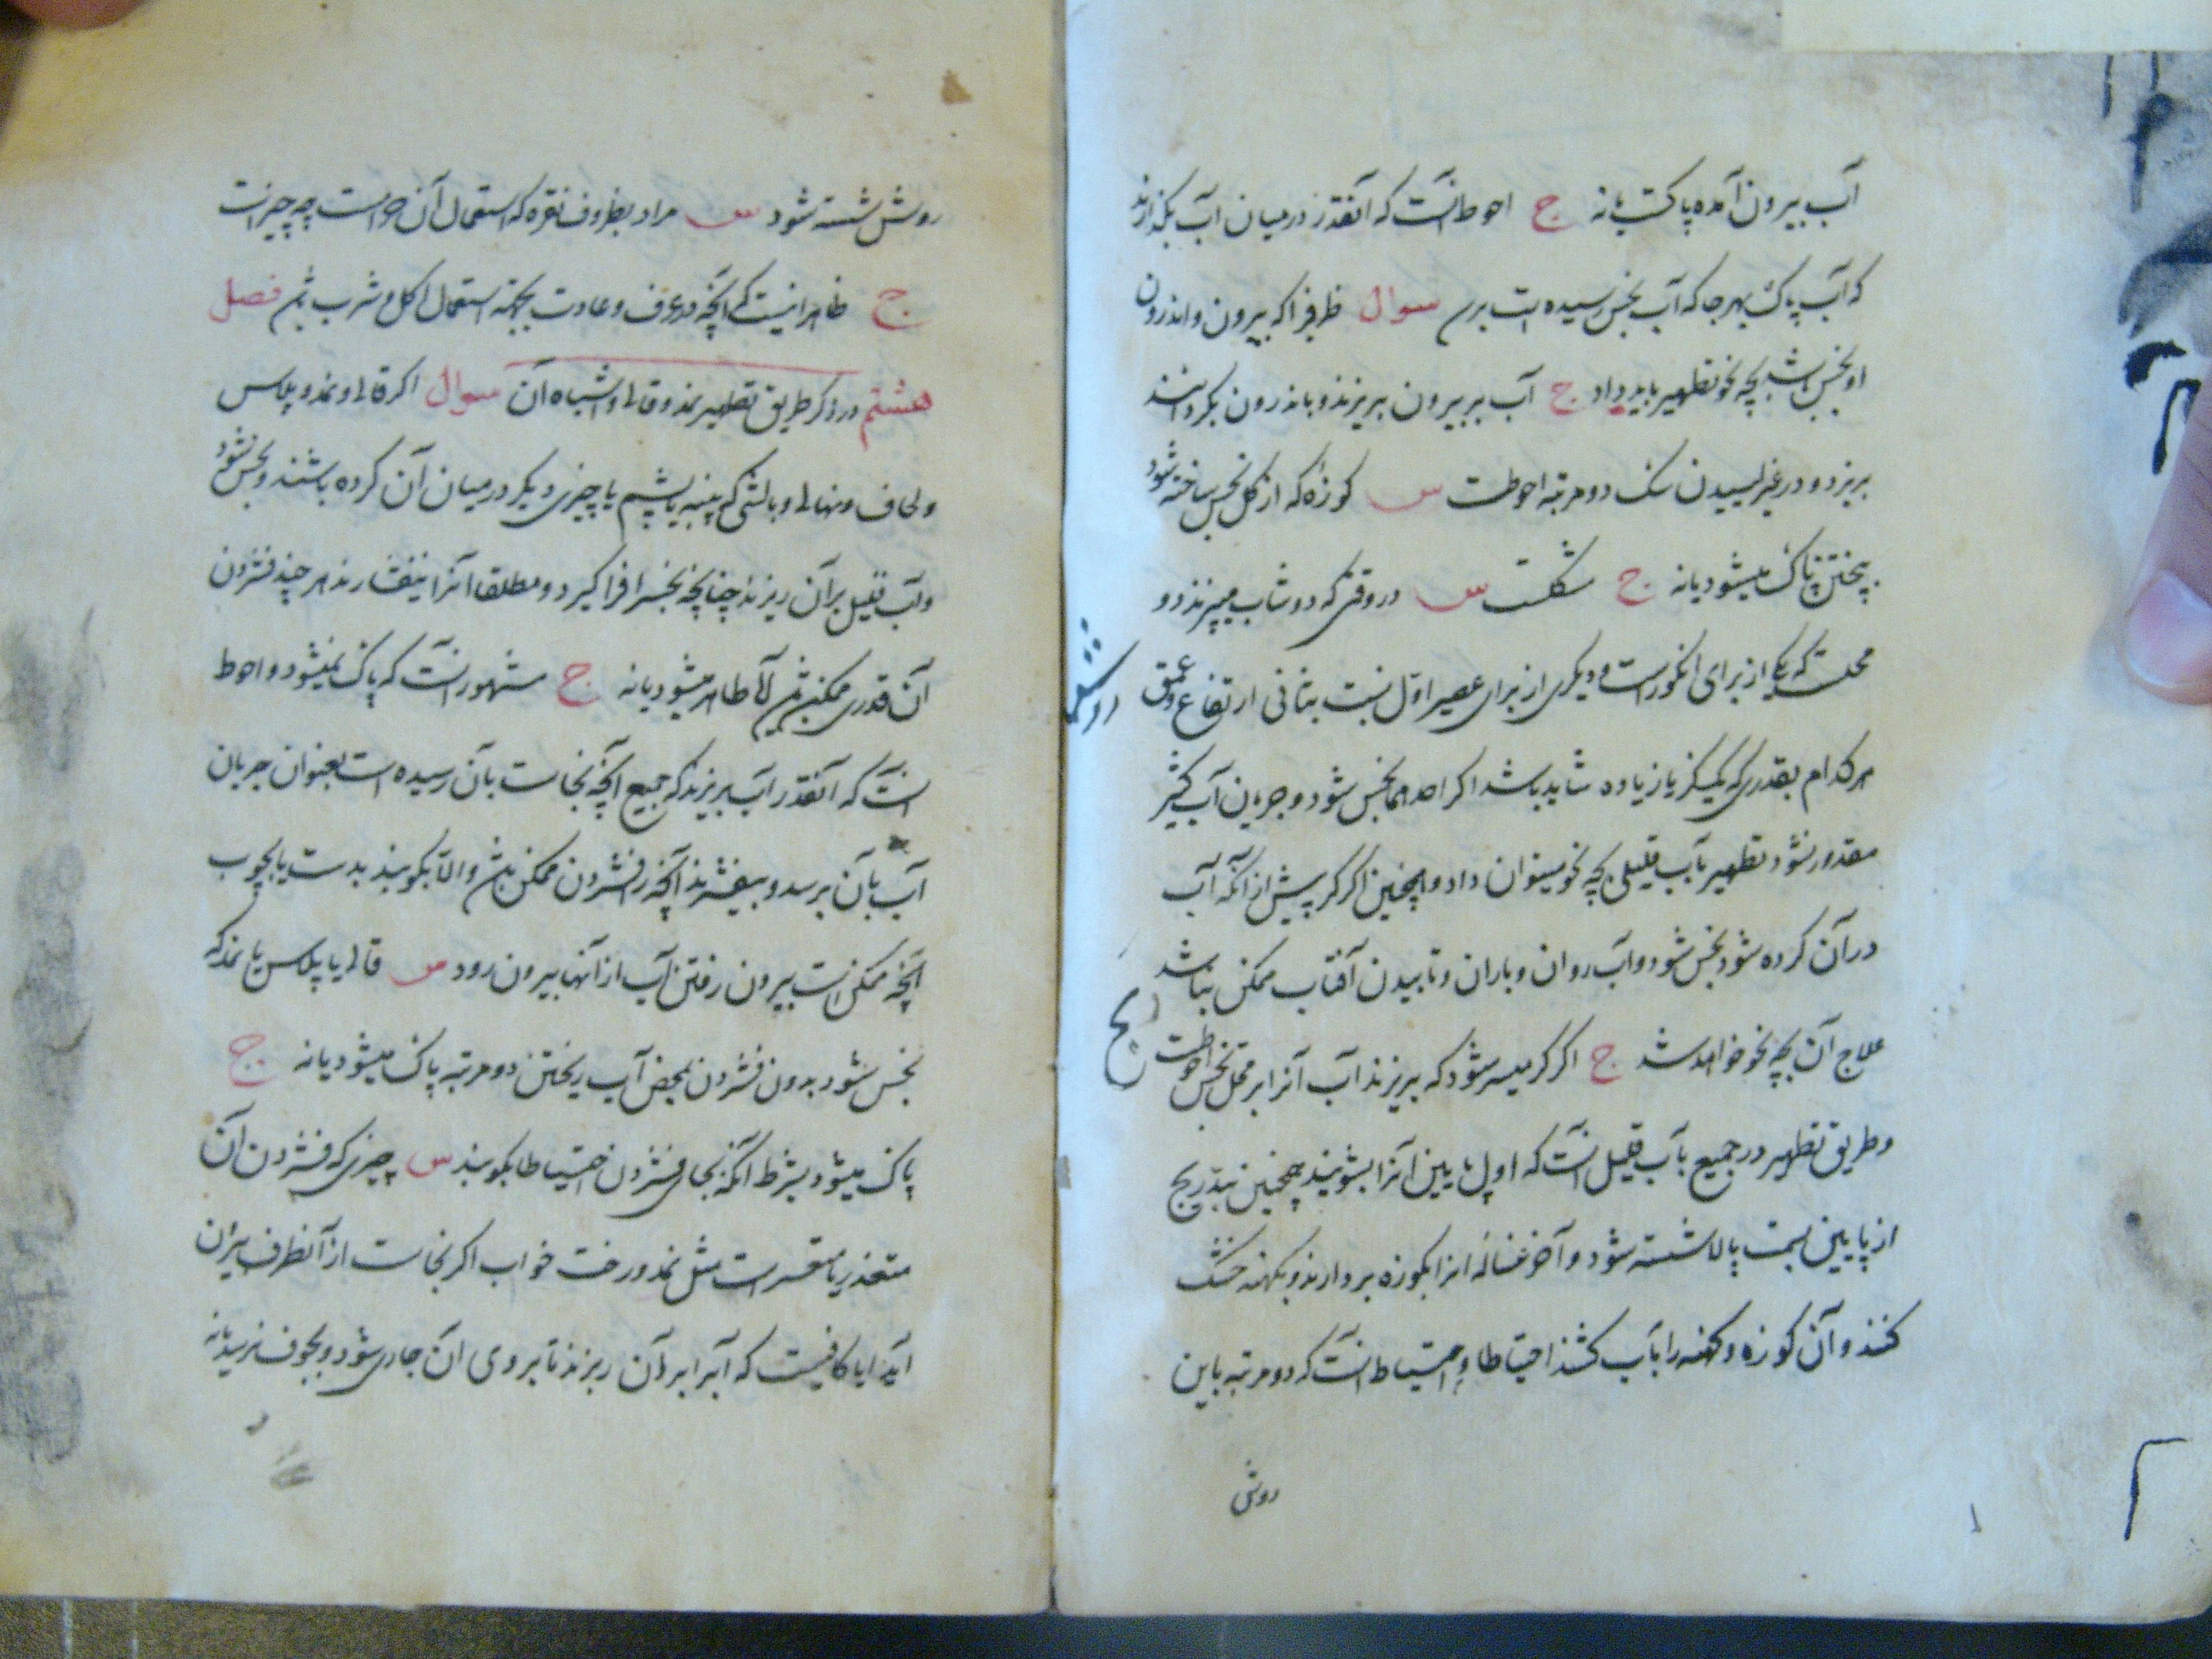 آب بیرون آمده پاکست یا نه ج احوط آنست که آنقدر در میان آب بگذارند
که آب پاک بهر جا که آب نجس رسیده است برسد سوال ظرفی را که بیرون و اندرون
او نجس باشد بچه نحو تطهیر باید داد ج آب بر بیرون بریزند و باندرون بگردانند
بریزد و در غیر لیسیدن سک دو مرتبه احوطست س کوزهٔ که از کل نجس ساخته شود
بپختن پاک میشود یا نه ج مشکلست س در وقتی که دوشاب میپزند دو
محلست که یکی از برای انکورست و دیکری از برای عصیر اول نسبت بثانی ارتفاع و عمق
هر کدام بقدری که یکگز یا زیاده شاید باشد اکر احدهما نجس شود و جریان آب کثیر
مقدور نشود تطهیر بآب قلیل بچه نحو میتوان داد و همچنین اکر کر پیش از آنکه آب
در آن کرده شود نجس شود و آب روان و باران و تابیدن آفتاب ممکن نباشد
علاج آن بچه نحو خواهد شد ج اکر کر میسر شود که بریزند آب آنرا بر محل نجس احوطست
و طریق تطهیر در جمیع بآب قلیل آنست که اول پایین آنرا بشویند همچنین بتدریج
از پایین بسمت بالا شسته شود و آخر غساله آنرا بکوزه بردارند و بکهنه خشک
کنند و آن کوزه و کهنه را بآب کشند احتیاطا و احتیاط آنست که دو مرتبه باین
روش
روش شسته شود س مراد بظروف نقره که استعمال آن حرامست چه چیز است
ج ظاهرا اینست که آنچه در عرف و عادت بجهته استعمال اکل و شرب باشد فصل
هشتم در ذکر طریق تطهیر نمد و قالی و اشباه آن سوال اکر قالی و نمد و پلاس
و لحاف و نهالی و بالشی که پنبه یا پشم یا چیزی دیکر در میان آن کرده باشند و نجس شود
و آب قلیل بر آن ریزند چنانچه نجس را فرا کیرد و مطلقا آنرا نیفشارند هر چند فشردن
آن قدری ممکن باشد آیا طاهر میشود یا نه ج مشهور آنست که پاک نمیشود و احوط
آنست که آنقدر آب بریزند که جمیع آنچه نجاست بآن رسیده است بعنوان جریان
آب بآن برسد و بیفشرند آنچه را فشردن ممکن باشد والا بکوبند بدست یا بچوب
آنچه ممکن است بیرون رفتن آب از آنها بیرون رود س قالی یا پلاس یا نمد که
نجس شود بدون فشردن بمحض آب ریختن دو مرتبه پاک میشود یا نه ج
پاک میشود بشرط آنکه بجای فشردن احتیاطا بکوبند س چیزی که فشردن آن
متعذر یا متعسر است مثل نمد و رخت خواب اکر نجاست از آنطرف بیرون
آید آیا کافیست که آب را بر آن ریزند تا بر وی آن جاری شود و بجوف نرسد یا نه